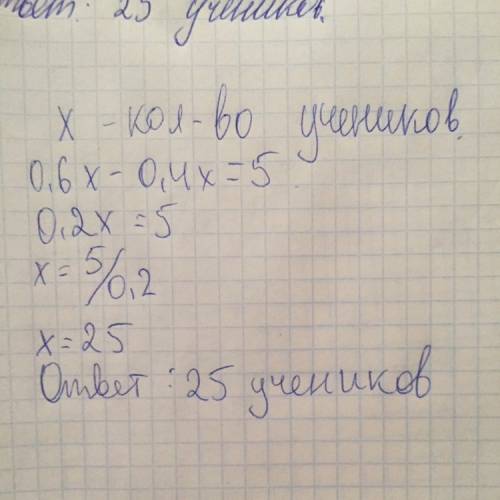 ответ: 25 учеников.
х - кол-во учеников.
0,6х - 0,4х = 5
0,2х = 5
х = 5/0,2
х = 25
Ответ: 25 учеников